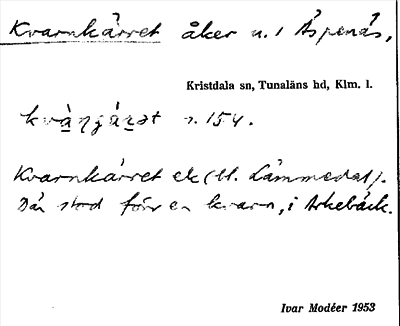 Kvarnkärret åker n. i Äspenäs,
Kristdala sn, Tunaläns hd, Klm. l.
s. 154.
Kvarnkärret ek (tl. Lämmedal).
Där stod förr en kvarn, i Arkebäck.
Ivar Modéer 1953